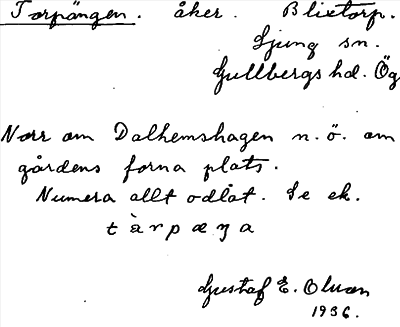 Torpängen. åker. Blixtorp.
Ljung sn.
Gullbergs hd. Ög
Norr om Dalhemshagen n.ö. om
gårdens forna plats.
Numera allt odlat. Se ek.
tàrpæŋa
Gustaf E. Olsson
1936.